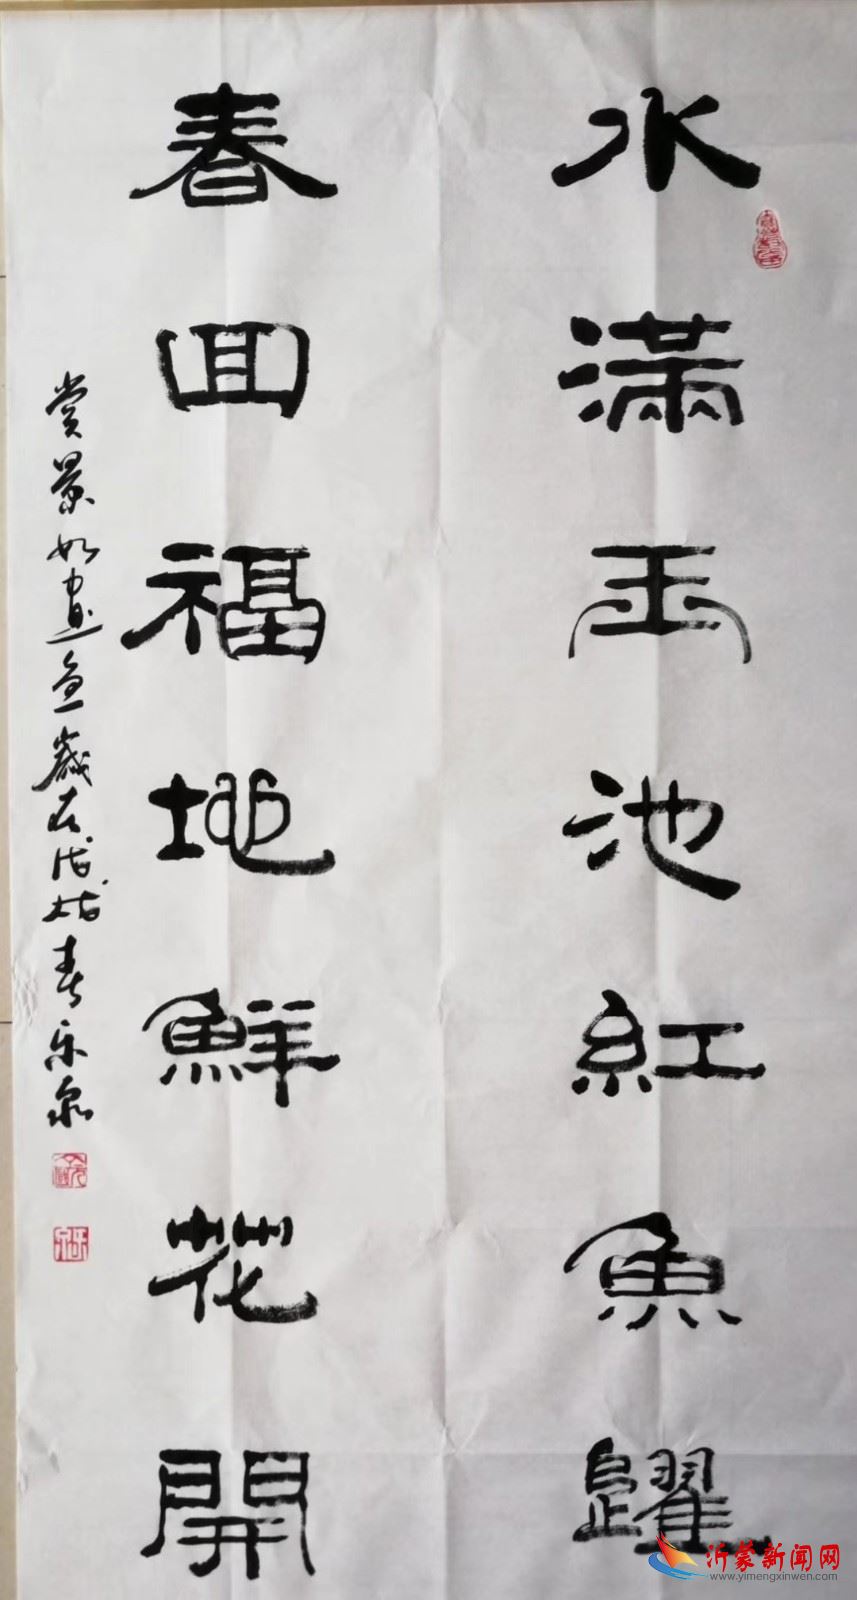 水滿玉池紅魚躍
春回福地鮮花開
賞景如画
歲在戊戌春
沂蒙新闻网
www.yimengxinwen.com